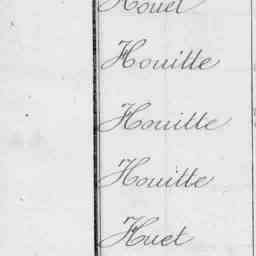 Houel
Houitte
Houitte
Houitte
Huet